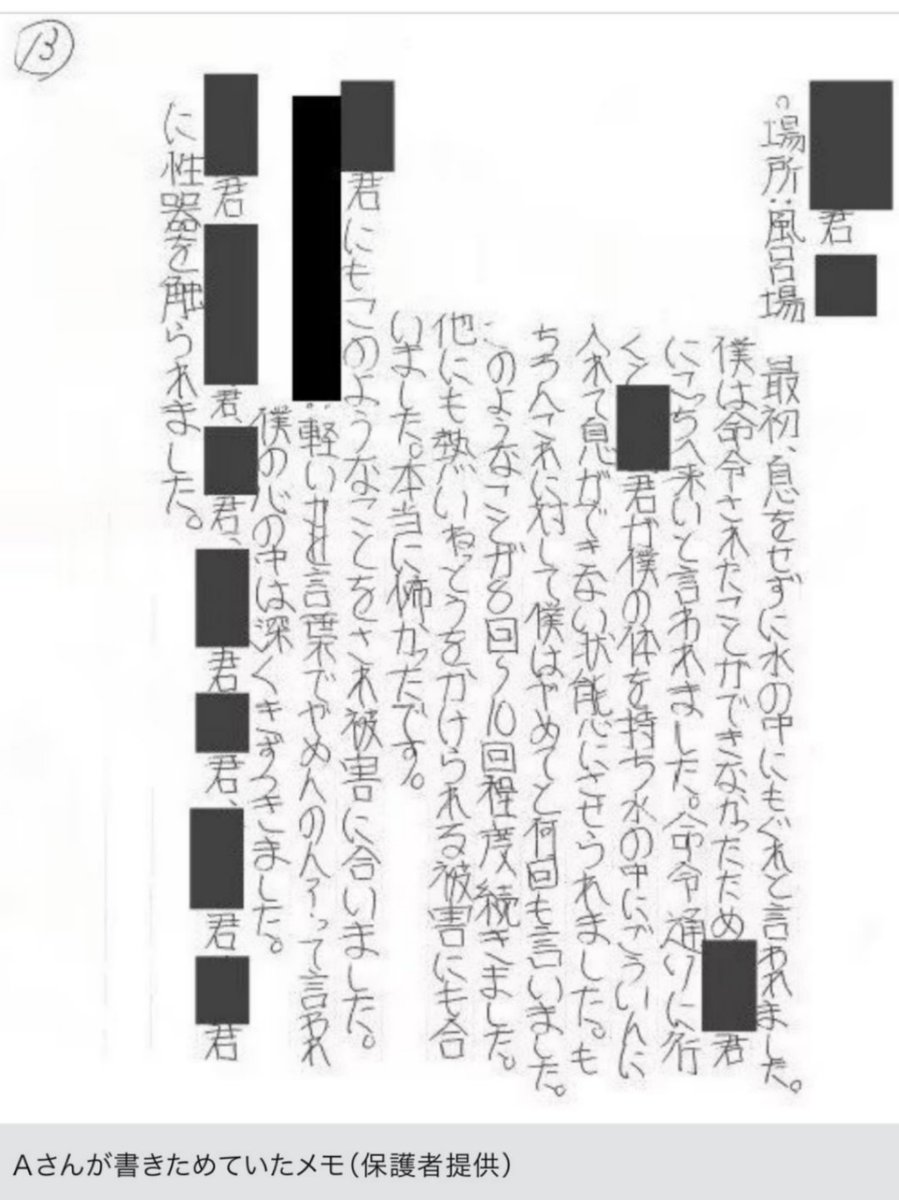 13
君
。場所:風呂場
最初、息をせずに水の中にもぐれと言われました。
僕は命令されたことができなかったため 君
にこっちへ来いと言われました。命令通りに行
くと 君が僕の体を持ち水の中にごういんに
入れて息ができない状態にさせられました。も
ちろんこれに対して僕はやめてと何回も言いました。
このようなことが8回〜10回程度続きました。
他にも熱いねっとうをかけられる被害にも合
いました。本当に怖かったです。
君にもこのようなことをされ被害に合いました。
:軽い 言葉でやめんのん?って言われ
僕の心の中は深くきずつきました。
君 君、 君、 君 君、 君 君
に性器を触られました。
Aさんが書きためていたメモ(保護者提供)